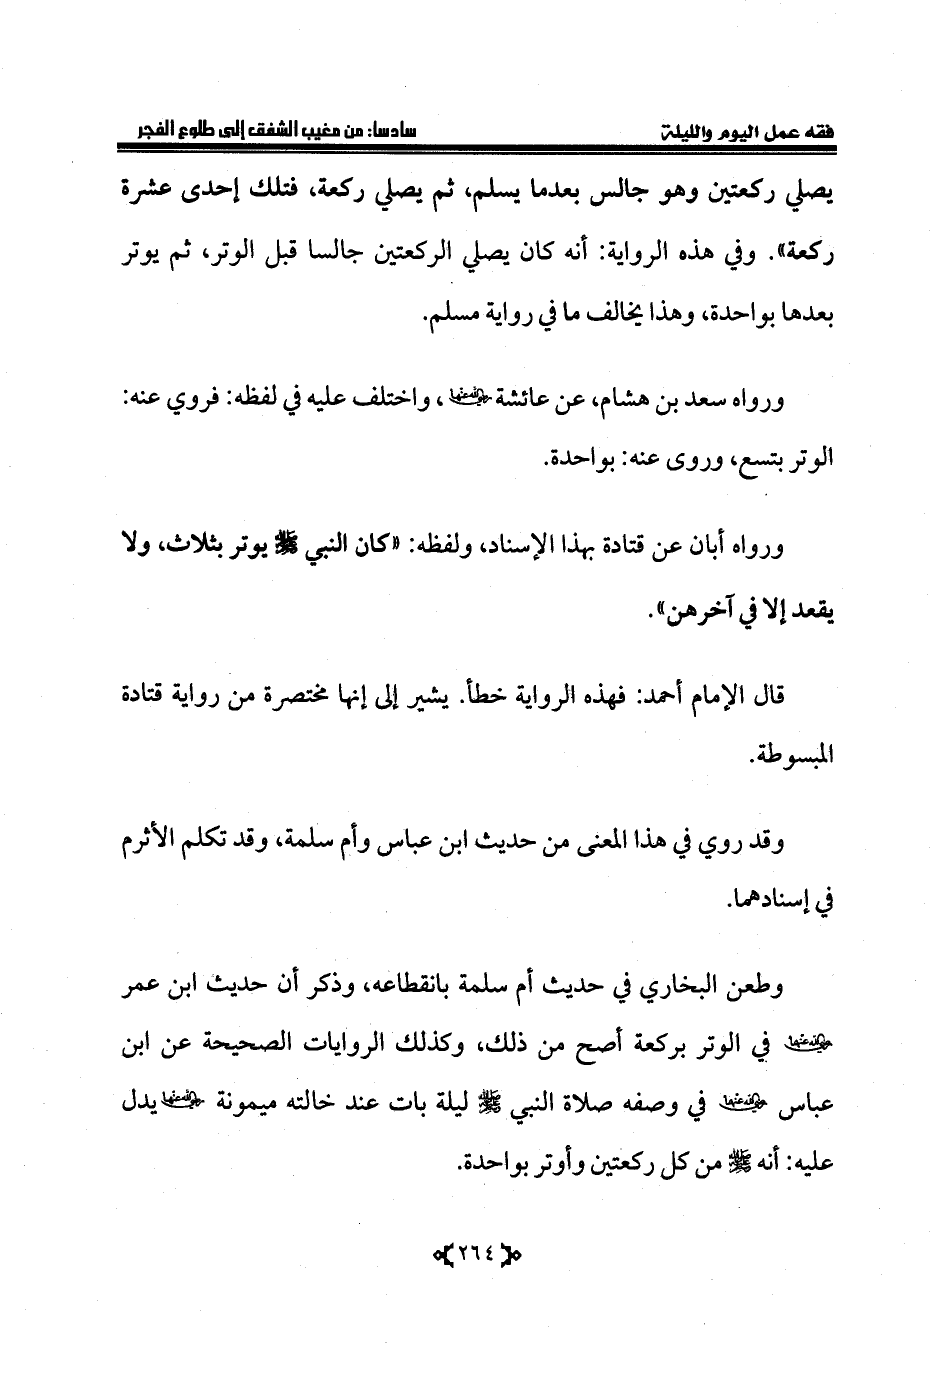 فقه عمل اليوم والليلة
سادسا: من مغيب الشفق إلى طلوع الفجر
يصلي ركعتين وهو جالس بعدما يسلم، ثم يصلي ركعة، فتلك إحدى عشرة
ركعة». وفي هذه الرواية: أنه كان يصلي الركعتين جالسا قبل الوتر، ثم يوتر
بعدها بواحدة، وهذا يخالف ما في رواية مسلم.
ورواه سعد بن هشام، عن عائشة رضي الله عنها، واختلف عليه في لفظه: فروي عنه:
الوتر بتسع، وروى عنه: بواحدة.
ورواه أبان عن قتادة بهذا الإسناد، ولفظه: «كان النبي ﷺ يوتر بثلاث، ولا
يقعد إلا في آخرهن».
قال الإمام أحمد: فهذه الرواية خطأ. يشير إلى إنها مختصرة من رواية قتادة
المبسوطة.
وقد روي في هذا المعنى من حديث ابن عباس وأم سلمة، وقد تكلم الأثرم
في إسنادهما.
وطعن البخاري في حديث أم سلمة بانقطاعه، وذكر أن حديث ابن عمر
رضي الله عنهما في الوتر بركعة أصح من ذلك، وكذلك الروايات الصحيحة عن ابن
عباس رضي الله عنهما في وصفه صلاة النبي ﷺ ليلة بات عند خالته ميمونة رضي الله عنها يدل
عليه: أنه ﷺ من كل ركعتين وأوتر بواحدة.
٢٦٤